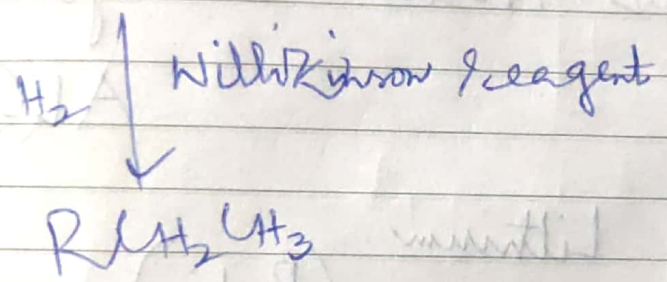 Willikinson reagent
H₂
RCH₂CH₃